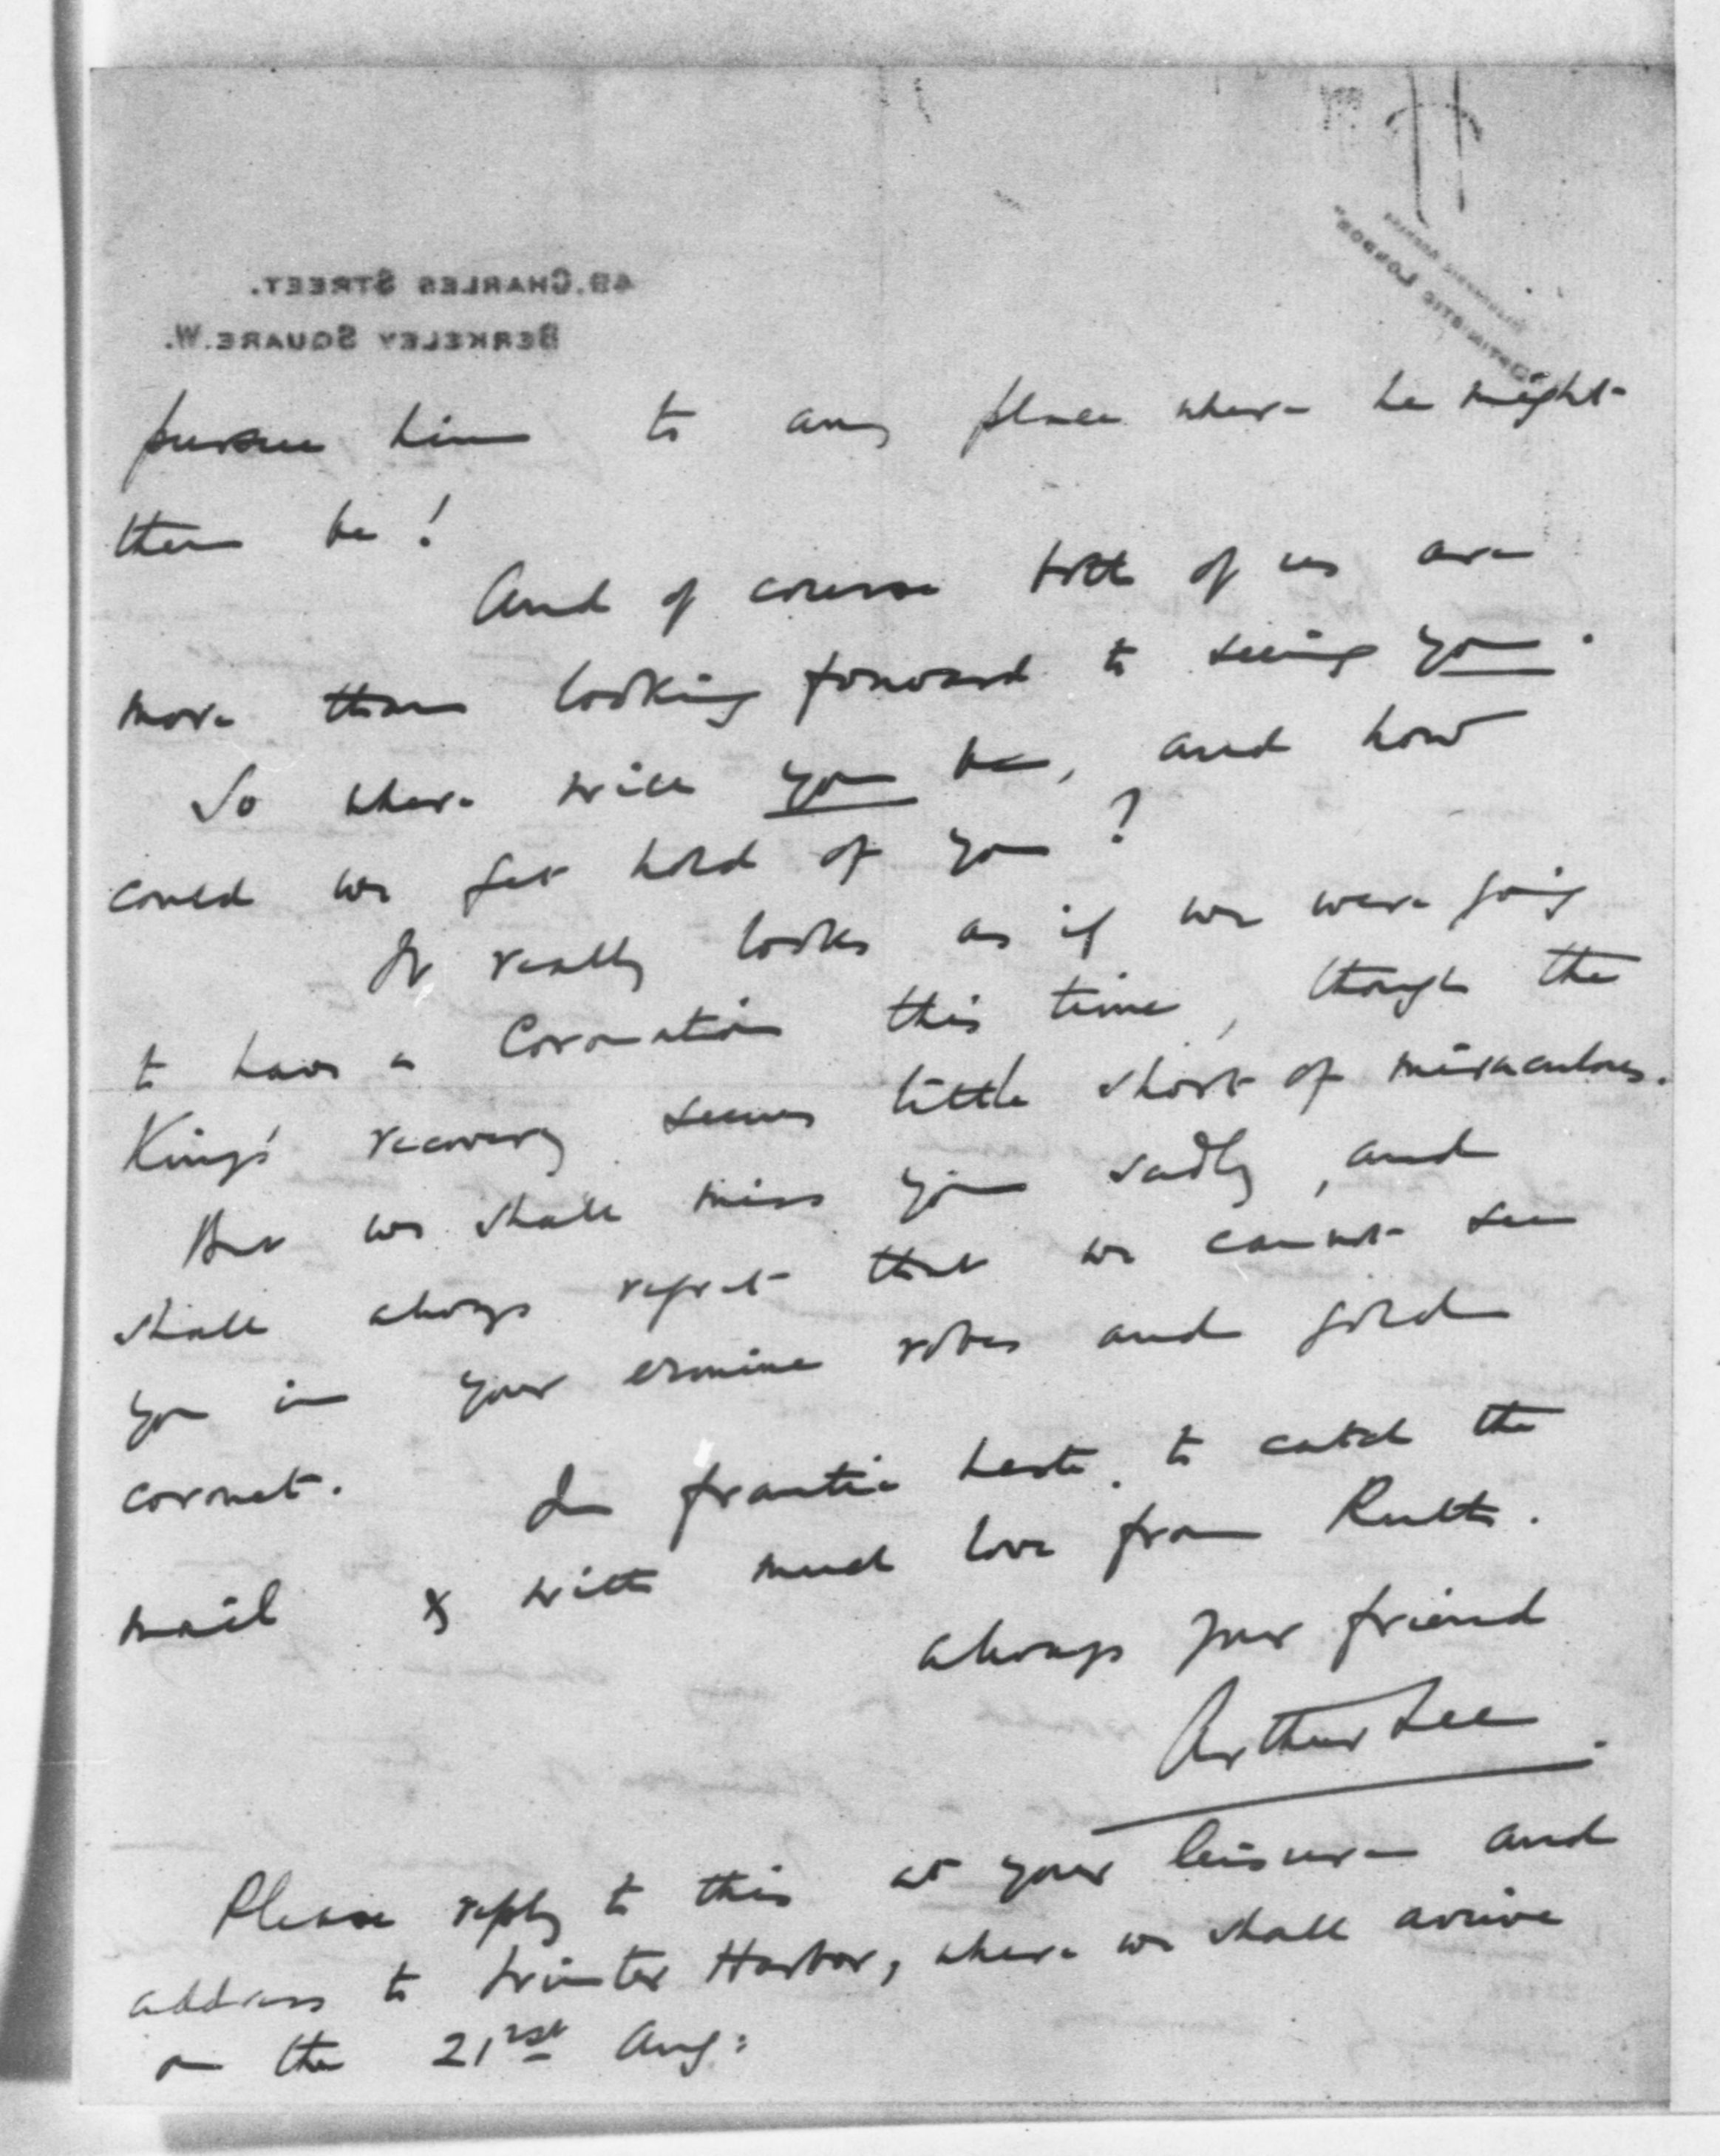 49. CHARLES STREET.
BERKELEY SQUARE. W.
LONDON
pursue him to any place where he might
then be!
And of course both of us are
more than looking forward to seeing you.
So where will you be, and how
could we get hold of you?
It really looks as if we were going
to have a Coronation this time, though the
King's recovery seems little short of miraculous.
But we shall miss you sadly, and
shall always regret that we cannot see
you in your ermine robes and gold
coronet.
In frantic haste, to catch the
mail & with much love from Ruth.
always your friend
Arthur Lee.
Please reply to this at your leisure and
address to Winter Harbor, where we shall arrive
on the 21rst Aug: